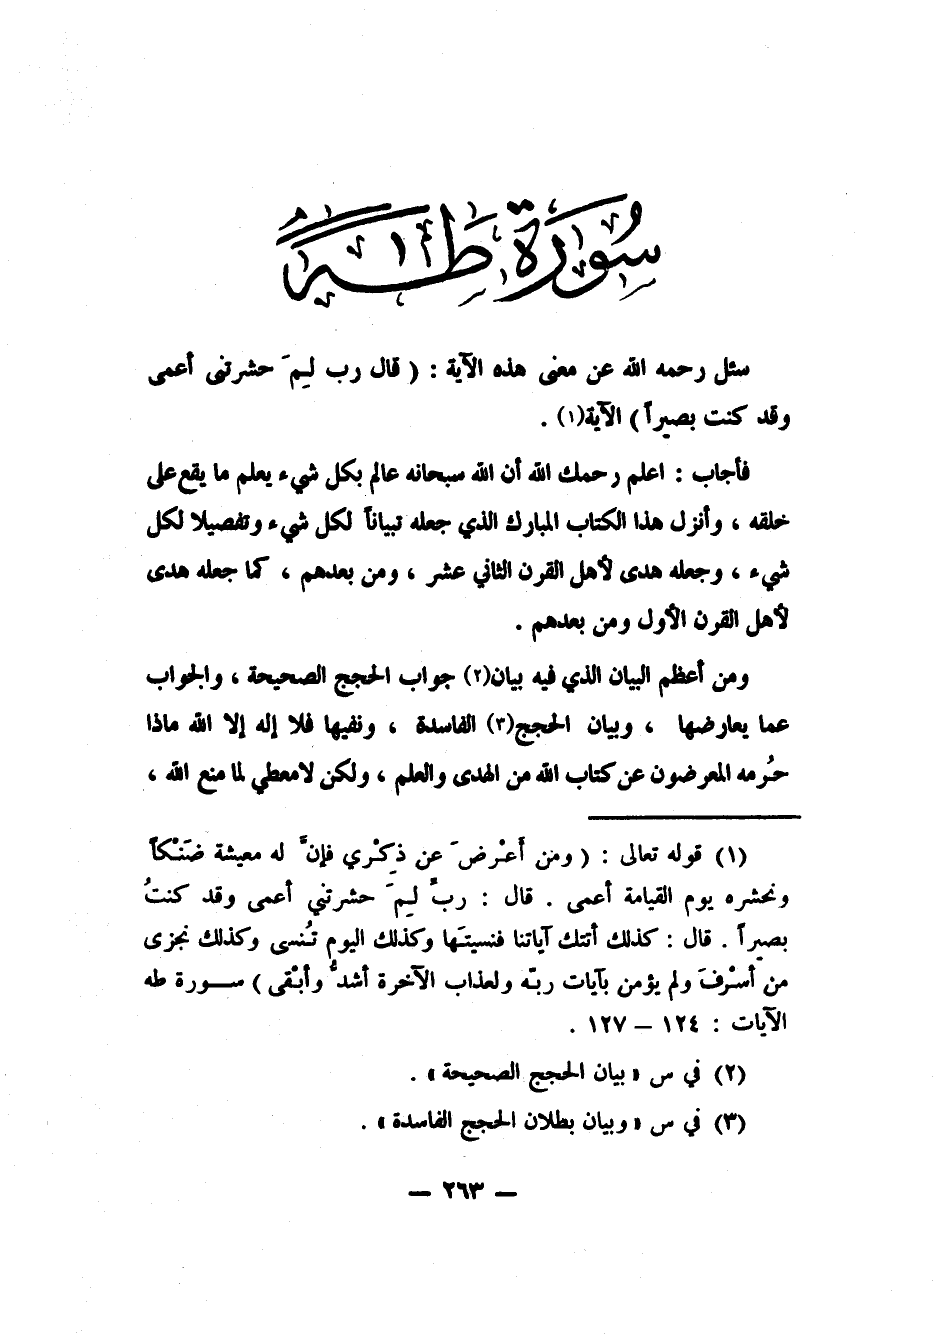 سُورَةُ طٰهٰ
سئل رحمه الله عن معنى هذه الآية : ( قال رب لِمَ حشرتنى أعمى
وقد كنت بصيراً ) الآية(١) .
فأجاب : اعلم رحمك الله أن الله سبحانه عالم بكل شيء يعلم ما يقع على
خلقه ، وأنزل هذا الكتاب المبارك الذي جعله تبياناً لكل شيء وتفصيلا لكل
شيء ، وجعله هدى لأهل القرن الثاني عشر ، ومن بعدهم ، كما جعله هدى
لأهل القرن الأول ومن بعدهم .
ومن أعظم البيان الذي فيه بيان(٢) جواب الحجج الصحيحة ، والجواب
عما يعارضها ، وبيان الحجج(٣) الفاسدة ، ونفيها فلا إله إلا الله ماذا
حُرمه المعرضون عن كتاب الله من الهدى والعلم ، ولكن لامعطي لما منع الله ،
(١) قوله تعالى : ( ومن أَعْرضَ عن ذِكْري فإنَّ له معيشة ضَنْكاً
ونحشره يوم القيامة أعمى . قال : ربِّ لِمَ حشرتني أعمى وقد كنتُ
بصيراً . قال : كذلك أتتك آياتنا فنسيتَها وكذلك اليوم تُنسى وكذلك نجزى
من أسْرفَ ولم يؤمن بآيات ربّه ولعذاب الآخرة أشدُّ وأبْقى ) سورة طه
الآيات : ١٢٤ — ١٢٧ .
(٢) في س « بيان الحجج الصحيحة » .
(٣) في س « وبيان بطلان الحجج الفاسدة » .
— ٢٦٣ —